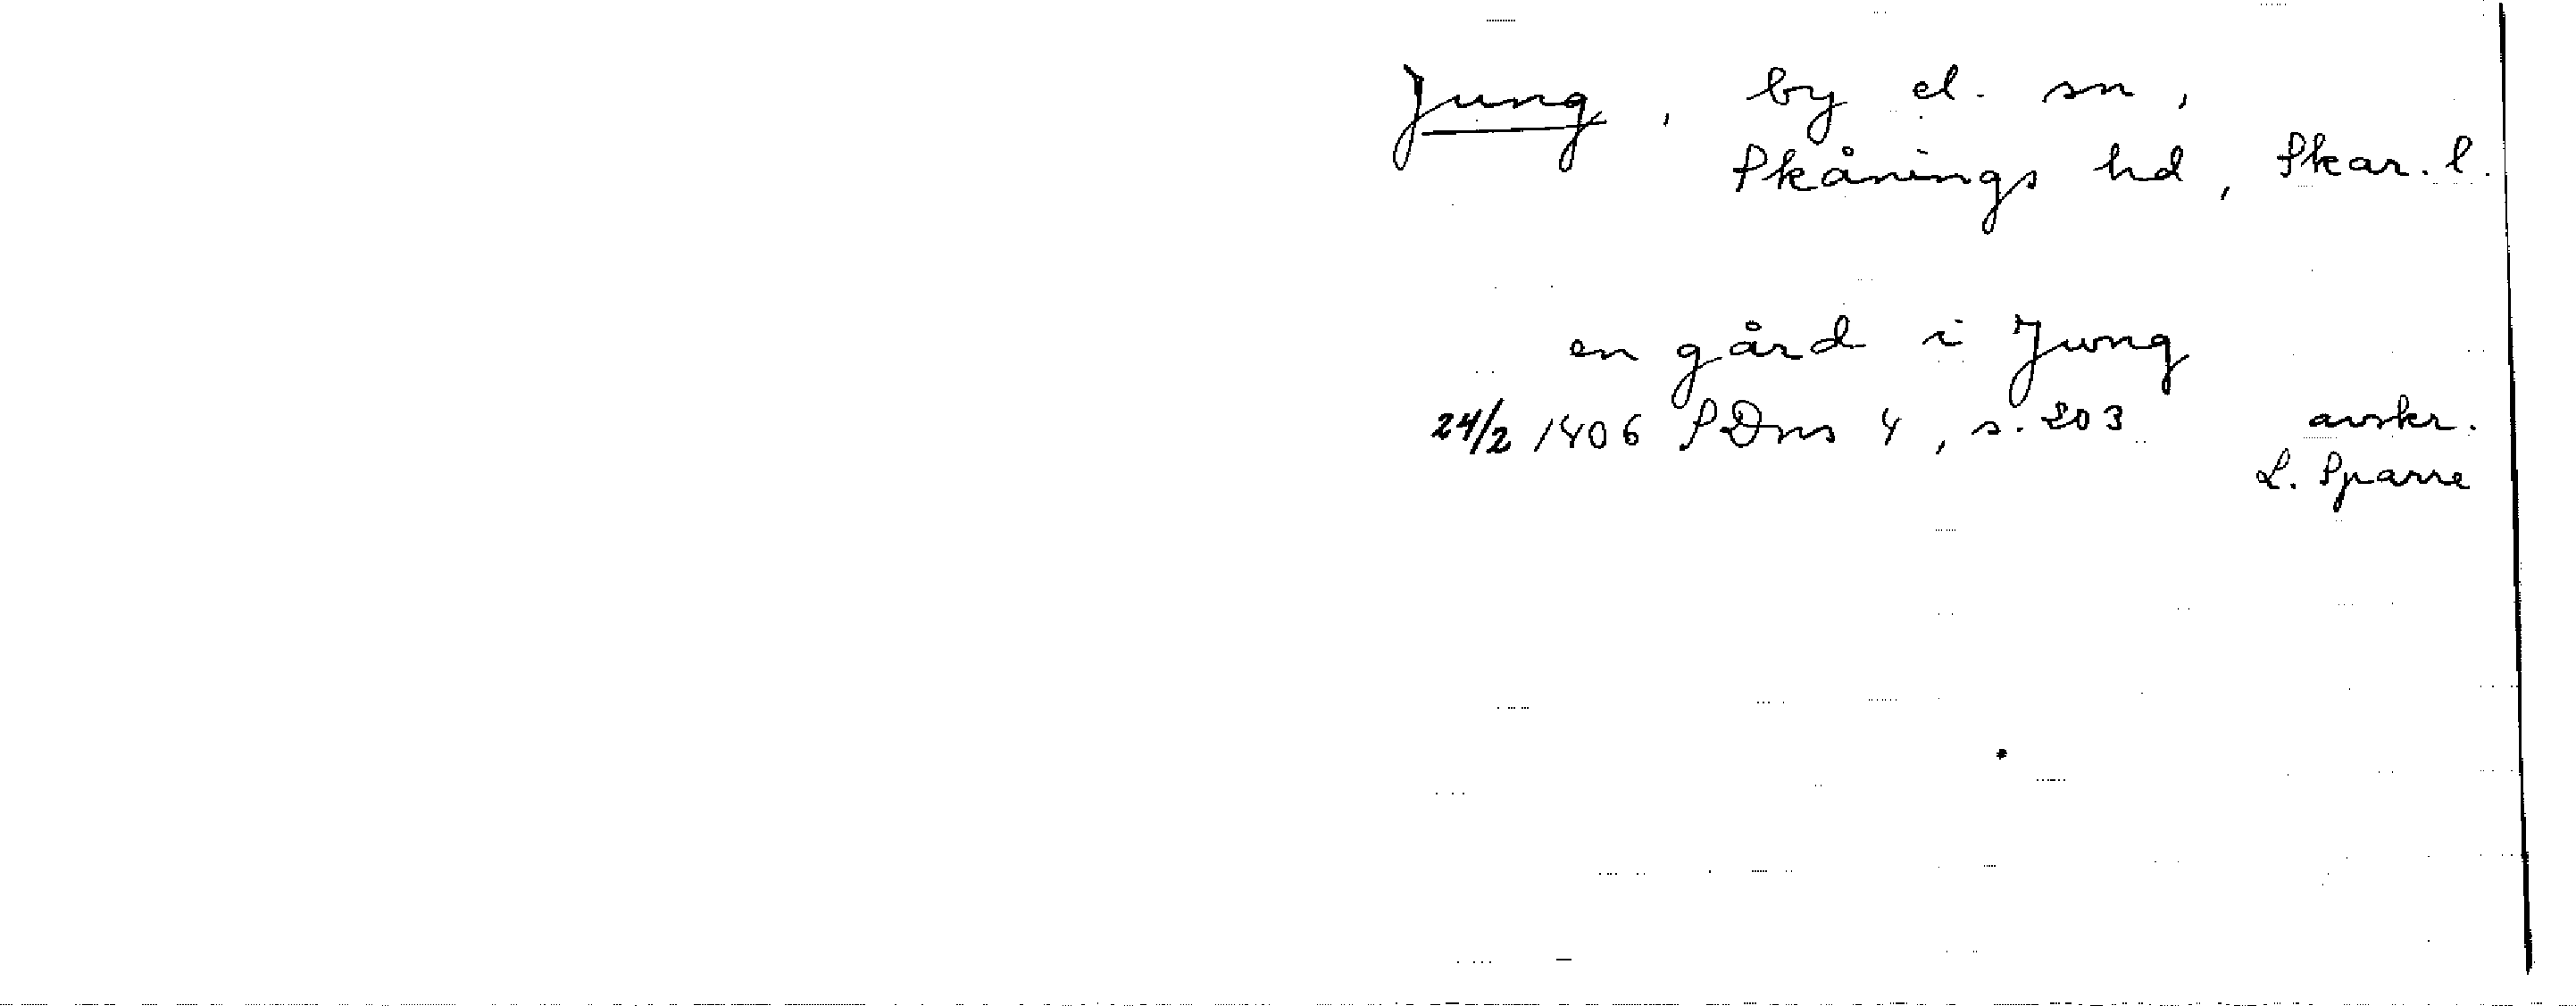 Jung, by el. sn,
Skånings hd, Skar. l.
en gård i Jung
24/2 1406 SDns 4, s. 203 avskr.
L. Sparre